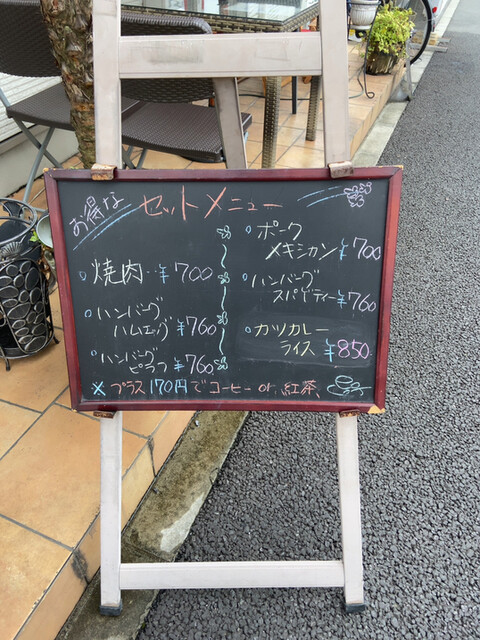 お得な セットメニュー
○焼肉‥¥700
○ハンバーグ
ハムエッグ¥760
○ハンバーグ
ピラフ ¥760
○ポーク
メキシカン¥700
○ハンバーグ
スパゲティー¥760
○カツカレー
ライス ¥850
※プラス170円でコーヒーor紅茶、